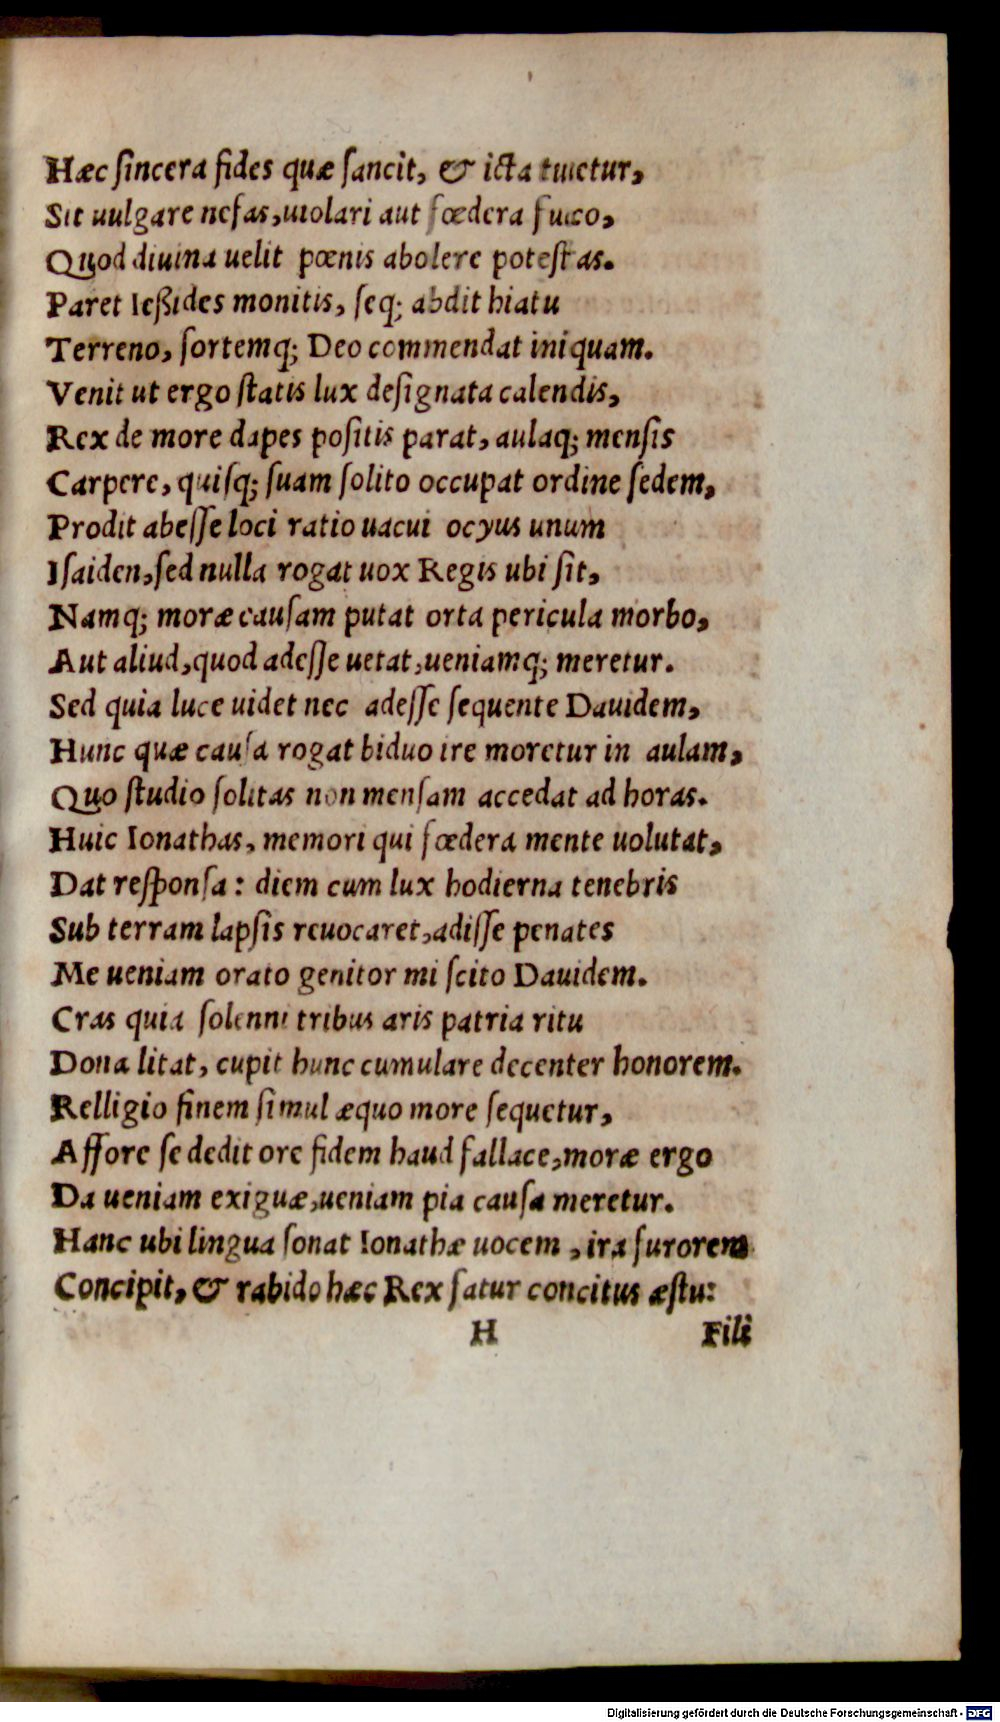 Hæc ſincera fides quæ ſancit, & icta tuietur,
Sit uulgare nefas, uiolari aut fœdera fuco,
Quod diuina uelit pœnis abolere poteſtas.
Paret Ießides monitis, ſeq; abdit hiatu
Terreno, ſortemq; Deo commendat iniquam.
Venit ut ergo ſtatis lux deſignata calendis,
Rex de more dapes poſitis parat, aulaq; menſis
Carpere, quiſq; ſuam ſolito occupat ordine ſedem,
Prodit abeſſe loci ratio uacui ocyus unum
Iſaiden, ſed nulla rogat uox Regis ubi ſit,
Namq; moræ cauſam putat orta pericula morbo,
Aut aliud, quod adeſſe uetat, ueniamq; meretur.
Sed quia luce uidet nec adeſſe ſequente Dauidem,
Hunc quæ cauſa rogat biduo ire moretur in aulam,
Quo ſtudio ſolitas non menſam accedat ad horas.
Huic Ionathas, memori qui fœdera mente uolutat,
Dat reſponſa: diem cum lux hodierna tenebris
Sub terram lapſis reuocaret, adiſſe penates
Me ueniam orato genitor mi ſcito Dauidem.
Cras quia ſolenni tribus aris patria ritu
Dona litat, cupit hunc cumulare decenter honorem.
Relligio finem ſimul æquo more ſequetur,
Affore ſe dedit ore fidem haud fallace, moræ ergo
Da ueniam exiguæ, ueniam pia cauſa meretur.
Hanc ubi lingua ſonat Ionathæ uocem, ira furorem
Concipit, & rabido hæc Rex fatur concitus æſtu:
H Fili
Digitalisierung gefördert durch die Deutsche Forschungsgemeinschaft - DFG